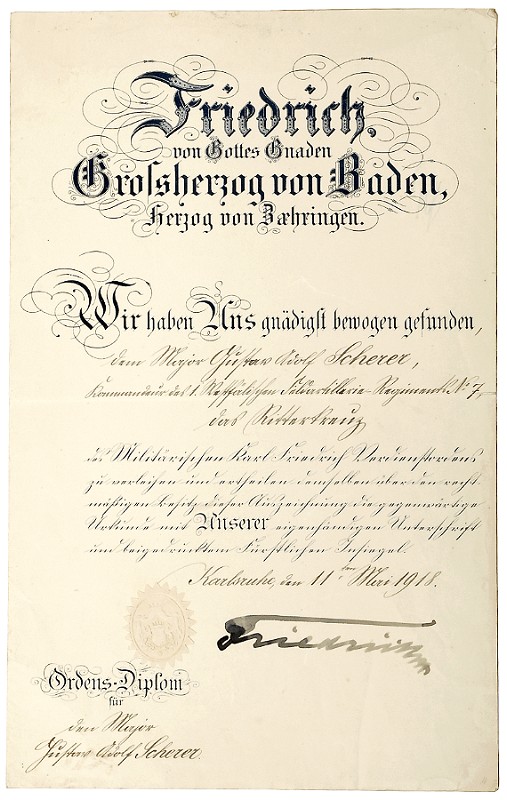 Friedrich,
von Gottes Gnaden
Grossherzog von Baden,
Herzog von Zæhringen.
Wir haben Uns gnädigst bewogen gefunden,
dem Major Gustav Adolf Scherer,
Kommandeur des 1. Westfälischen Feldartillerie-Regiments No 7,
das Ritterkreuz
des Militärischen Karl Friedrich Verdienstordens
zu verleihen und ertheilen demselben über den recht-
mäßigen Besitz dieser Auszeichnung die gegenwärtige
Urkunde mit Unserer eigenhändigen Unterschrift
und beigedrucktem Fürstlichen Insiegel.
Karlsruhe, den 11ten Mai 1918.
Friedrich
Ordens-Diplom
für
den Major
Gustav Adolf Scherer.